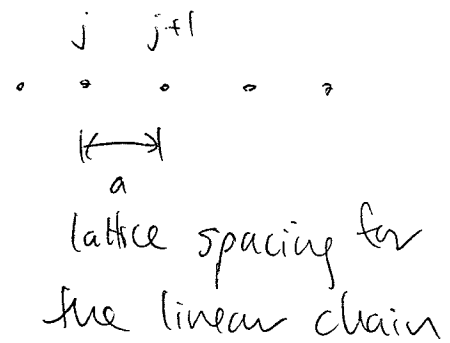 j j+1
a
lattice spacing for
the linear chain